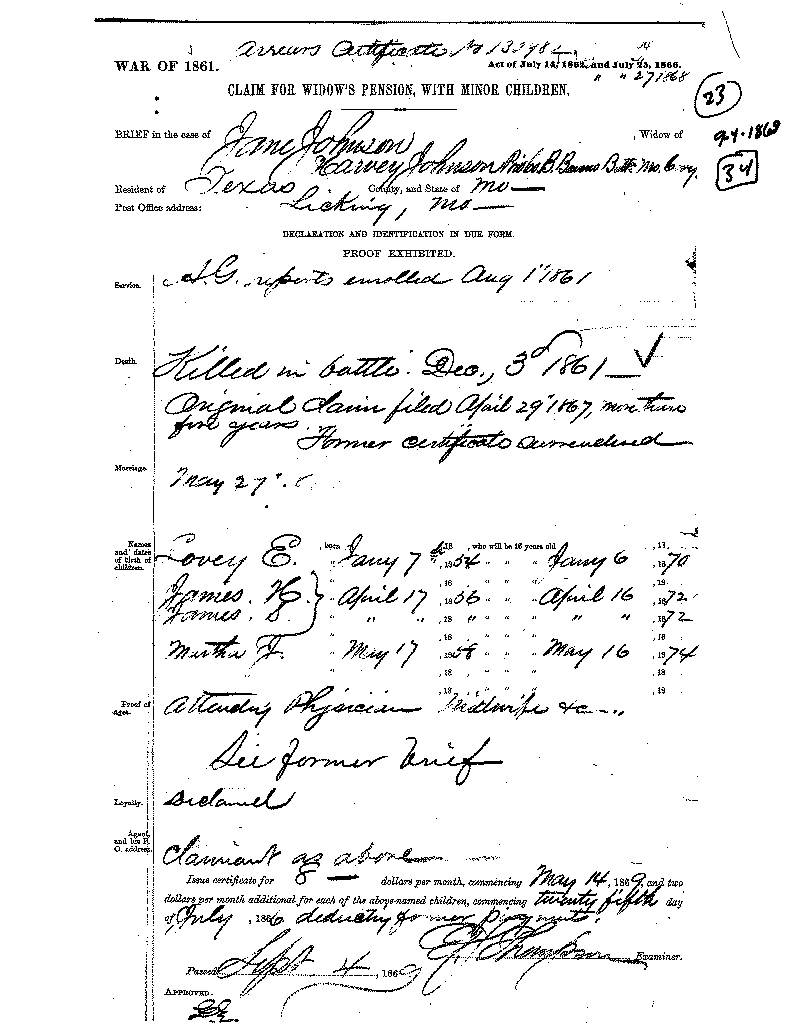 Arrears Certificate No 13398
WAR OF 1861.
Act of July 14, 1862, and July 25, 1866.
" " 27 1868
CLAIM FOR WIDOW'S PENSION, WITH MINOR CHILDREN,
23
9-4-1869
34
BRIEF in the case of Jane Johnson, Widow of
Harvey Johnson B. Mo.
Resident of Texas County, and State of Mo —
Post Office address: Licking, Mo —
DECLARATION AND IDENTIFICATION IN DUE FORM.
PROOF EXHIBITED.
Service. A.G. reports enrolled Aug 1" 1861
Death. Killed in battle. Dec., 3d 1861 —
Original claim filed April 29" 1867, more than
five years.
Former certificate surrendered
Marriage. May 27"
Names and dates of birth of children.
Lovey E. born Jany 7, 1854 who will be 16 years old Jany 6, 1870
James. " April 17, 1856 " " " April 16, 1872
James. " " ", 18 " " " " " ", 1872
Martha " May 17, 1858 " " " May 16, 1874
Proof of ages. Attending Physician Midwife &c
See former brief
Loyalty. Declared
Agent, and his P. O. address. Claimant as above
Issue certificate for 8 — dollars per month, commencing May 14, 1869, and two
dollars per month additional for each of the above-named children, commencing twenty fifth day
of July, 1866 former payments.
Thompson Examiner.
Passed Sept 4, 1869
APPROVED.